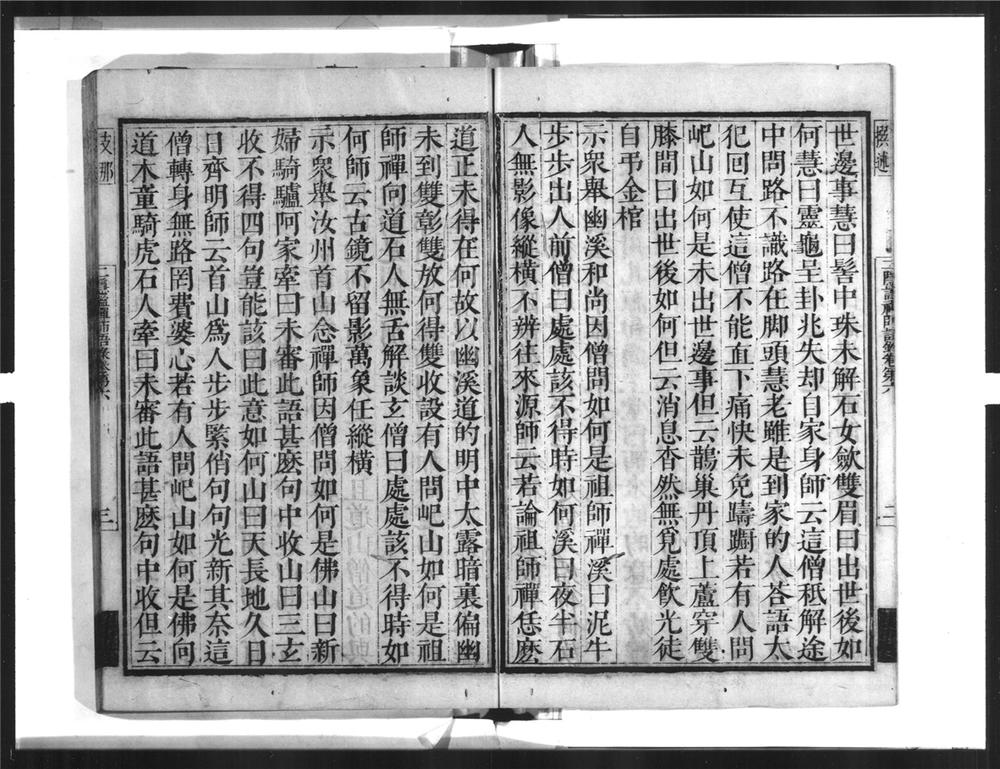 世邊事慧曰髻中珠未解石女歛雙眉曰出世後如
何慧曰靈龜呈卦兆失却自家身師云這僧秪解途
中問路不識路在脚頭慧老雖是到家的人荅語太
犯回互使這僧不能直下痛快未免躊躕若有人問
屺山如何是未出世邊事但云鵲巢丹頂上蘆穿雙
膝間曰出世後如何但云消息杳然無覓處飲光徒
自弔金棺
示衆舉幽溪和尚因僧問如何是祖師禪溪曰泥牛
步步出人前僧曰處處該不得時如何溪曰夜半石
人無影像縱橫不辨往來源師云若論祖師禪恁麽
道正未得在何故以幽溪道的明中太露暗裏偏幽
未到雙彰雙放何得雙收設有人問屺山如何是祖
師禪向道石人無舌解談玄僧曰處處該不得時如
何師云古鏡不留影萬象任縱橫
示衆舉汝州首山念禪師因僧問如何是佛山曰新
婦騎驢阿家牽曰未審此語甚麽句中收山曰三玄
收不得四句豈能該曰此意如何山曰天長地久日
月齊明師云首山爲人步步緊俏句句光新其奈這
僧轉身無路罔費婆心若有人問屺山如何是佛向
道木童騎虎石人牽曰未審此語甚麽句中收但云
支那
三